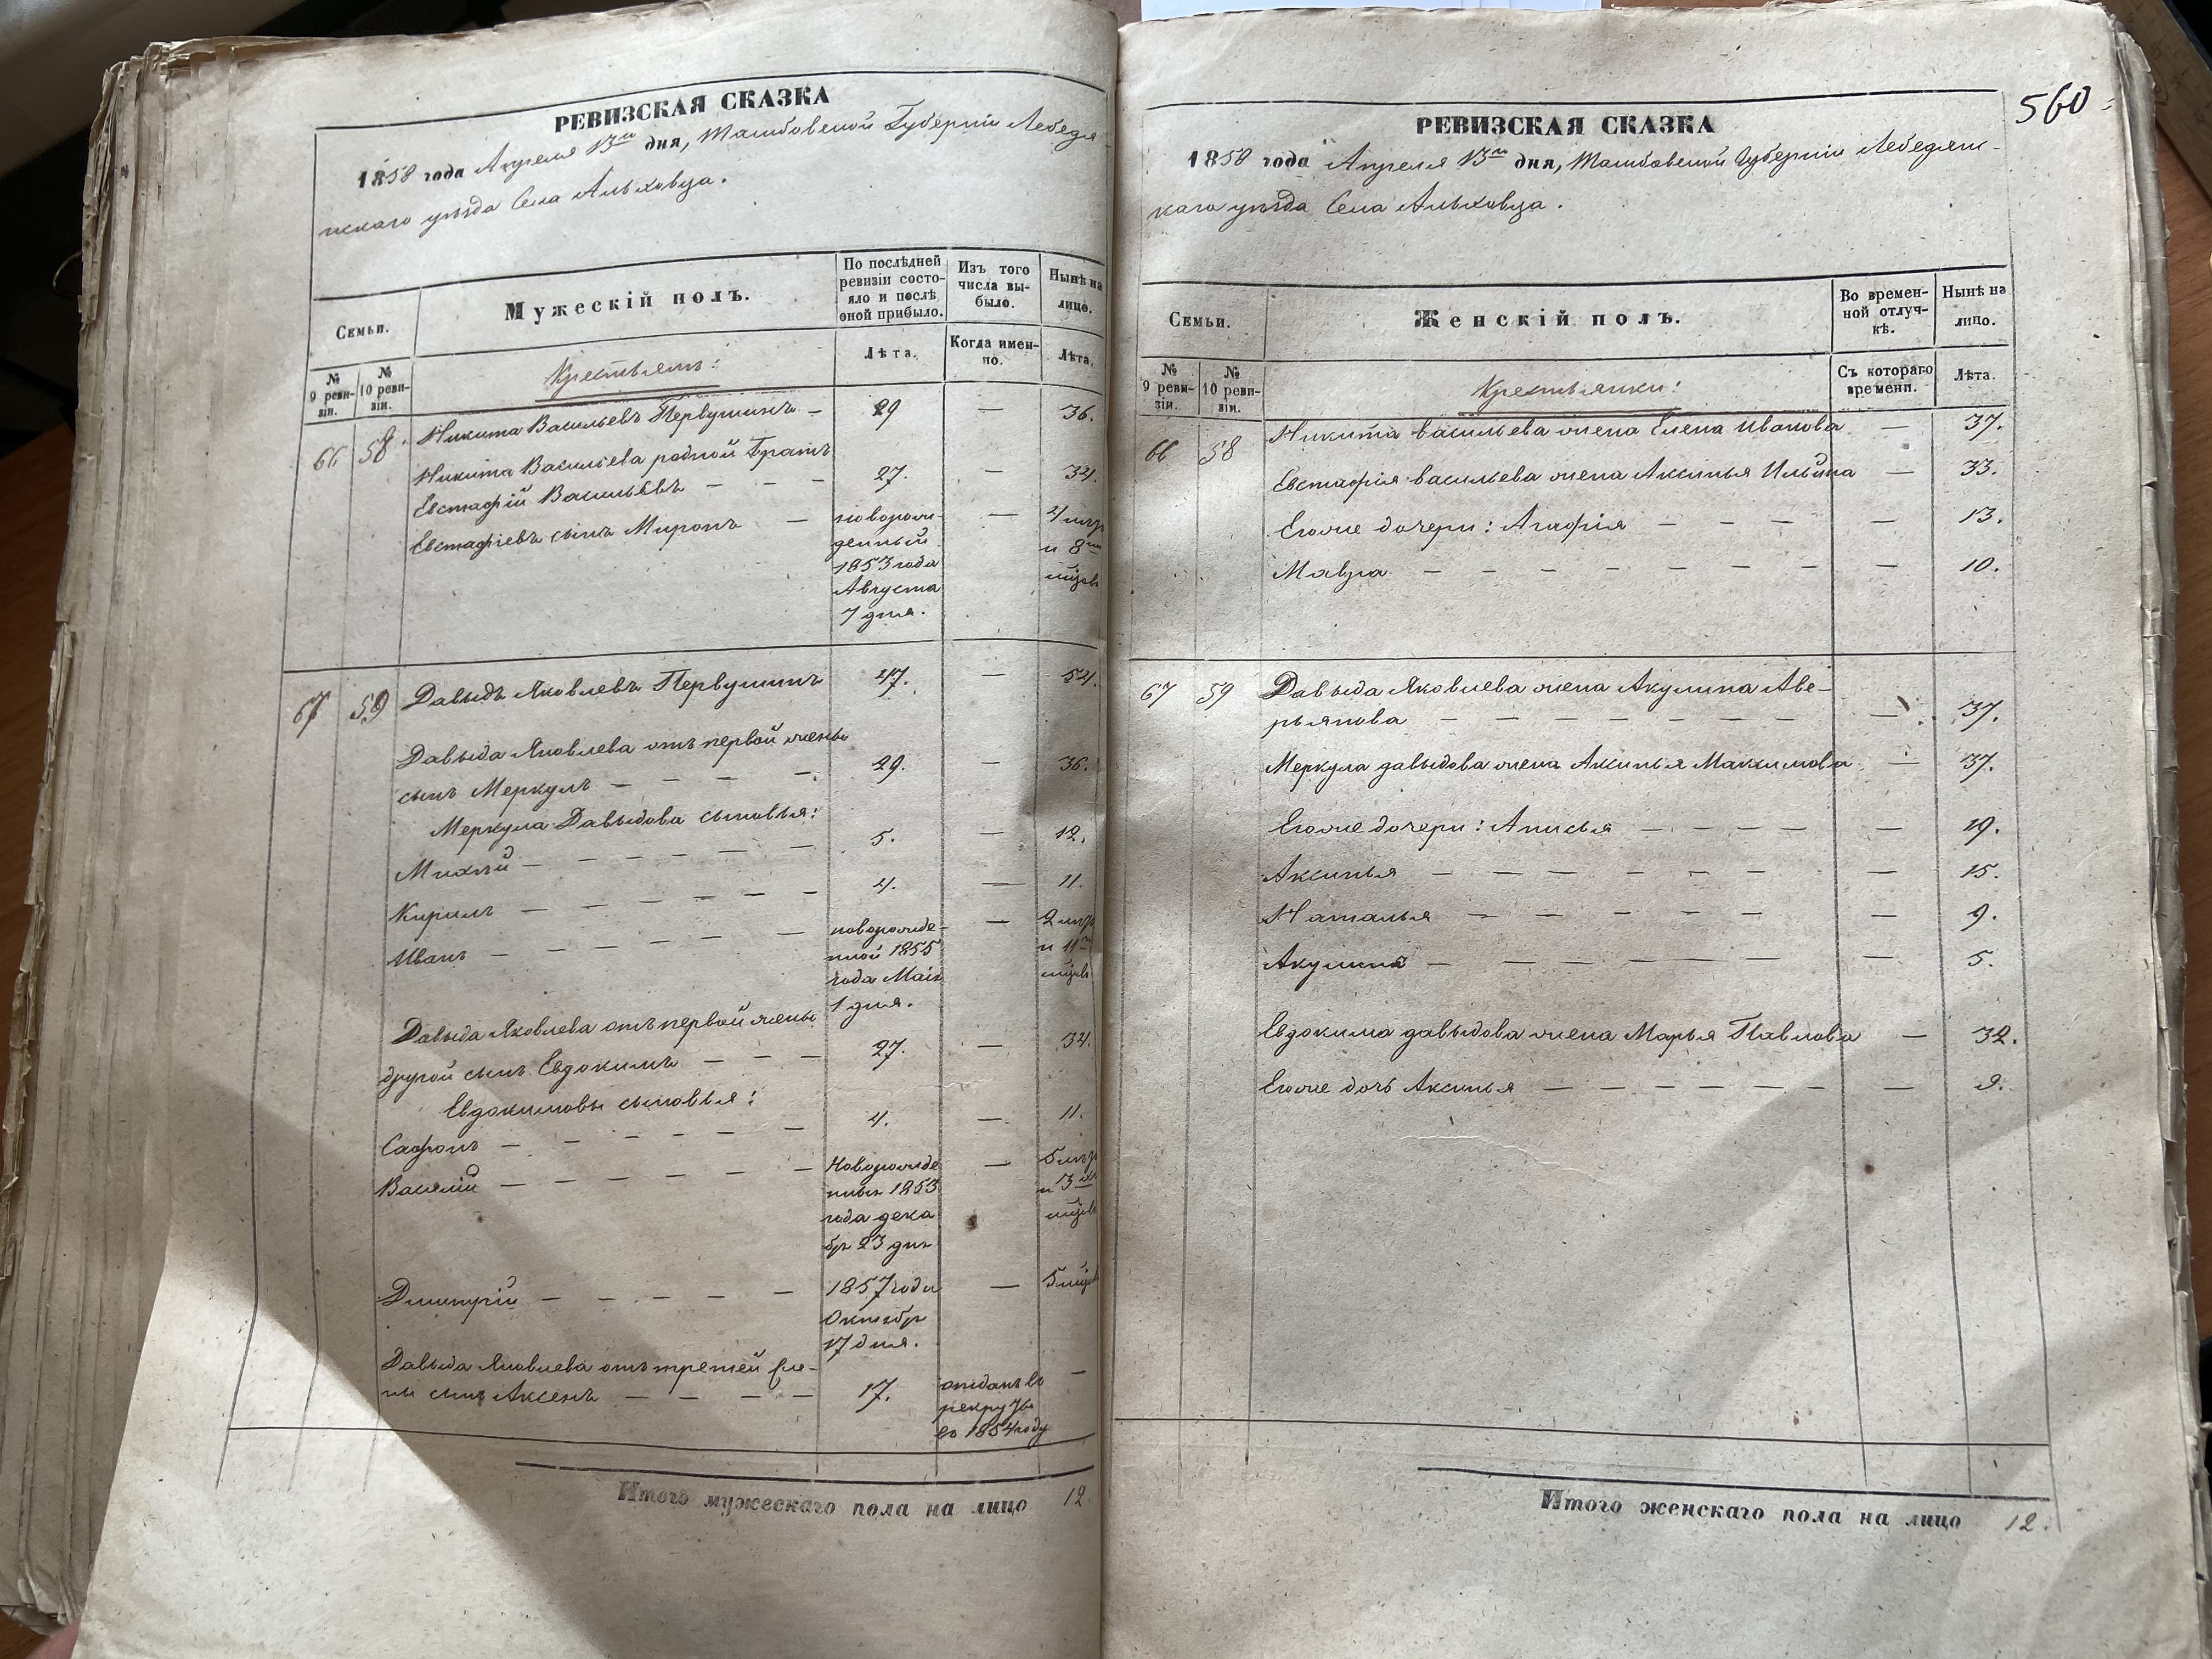 РЕВИЗСКАЯ СКАЗКА
1858 года Апреля 13го дня, Тамбовской Губерніи Лебедя-
нскаго уѣзда Села Альховца.
Семьи.
Мужескій полъ.
По послѣдней ревизіи состо-
яло и послѣ оной прибыло.
Изъ того числа вы-
было.
Нынѣ на лицо.
№ 9 реви-
зіи.
№ 10 реви-
зіи.
Крестьянъ:
Лѣта.
Когда имен-
но.
Лѣта.
66 58. Никита Васильевъ Первушинъ — 29 — 36.
Никита Васильева родной Братъ
Евстафій Васильевъ — — — 27. — 34.
Евстафіевъ сынъ Миронъ — новорож- — 4 лѣтъ
денный и 8
1853 года мѣсяцъ
Августа
7 дня.
67 59 Давыдъ Яковлевъ Первушинъ 47. — 54.
Давыда Яковлева отъ первой жены
сынъ Меркулъ — — — — 29. — 36.
Меркула Давыдова сыновья:
Михѣй — — — — — — 5. — 12.
Кирилъ — — — — — — 4. — 11.
Иванъ — — — — — — новорожде- — 2 лѣтъ
нной 1855 и 11
года Маія
1 дня.
Давыда Яковлева отъ первой жены
другой сынъ Евдокимъ — — — 27. — 34.
Евдокимовы сыновья:
Сафонъ — — — — — — 4. — 11.
Василій — — — — — — новорожде — 5 лѣтъ
нный 1853 и 3
года дека
бр 23 дня
Дмитрій — — — — — 1857 года — 5
Октябр
17 дня.
Давыда Яковлева отъ третей же-
ны сынъ Аксенъ — — — — 17. отданъ въ —
рекруты
въ 1854 году
Итого мужескаго пола на лицо 12
560
РЕВИЗСКАЯ СКАЗКА
1858 года Апреля 13го дня, Тамбовской Губерніи Лебедянс-
каго уѣзда Села Альховца.
Семьи.
Женскій полъ.
Во времен-
ной отлуч-
кѣ.
Нынѣ на лицо.
№ 9 реви-
зіи.
№ 10 реви-
зіи.
Крестьянки:
Съ котораго времени.
Лѣта.
66 58 Никита васильева жена Елена Иванова — 37.
Евстафія васильева жена Аксинья Ильина — 33.
Егоже дочери: Агафія — — — — 13.
Мавра — — — — — — — — 10.
67 59 Давыда Яковлева жена Акулина Аве-
рьянова — — — — — — — — 37.
Меркула давыдова жена Аксинья Максимова — 37.
Егоже дочери: Анисья — — — — — 19.
Аксинья — — — — — — — 15.
Наталья — — — — — — — 9.
Акулина — — — — — — — 5.
Евдокима давыдова жена Марья Павлова — 32.
Егоже дочь Аксинья — — — — — — — 9.
Итого женскаго пола на лицо 12.